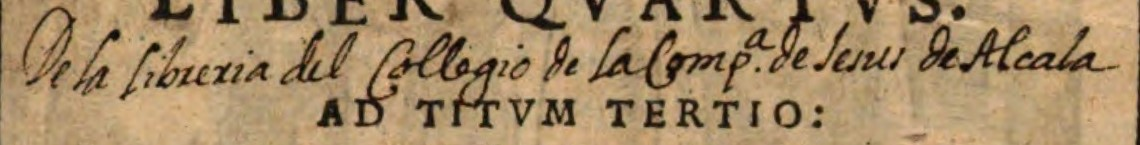 LIBER QVARTVS.
De la libreria del Collegio de la Comp.ª de Iesus de Alcala
AD TITVM TERTIO: